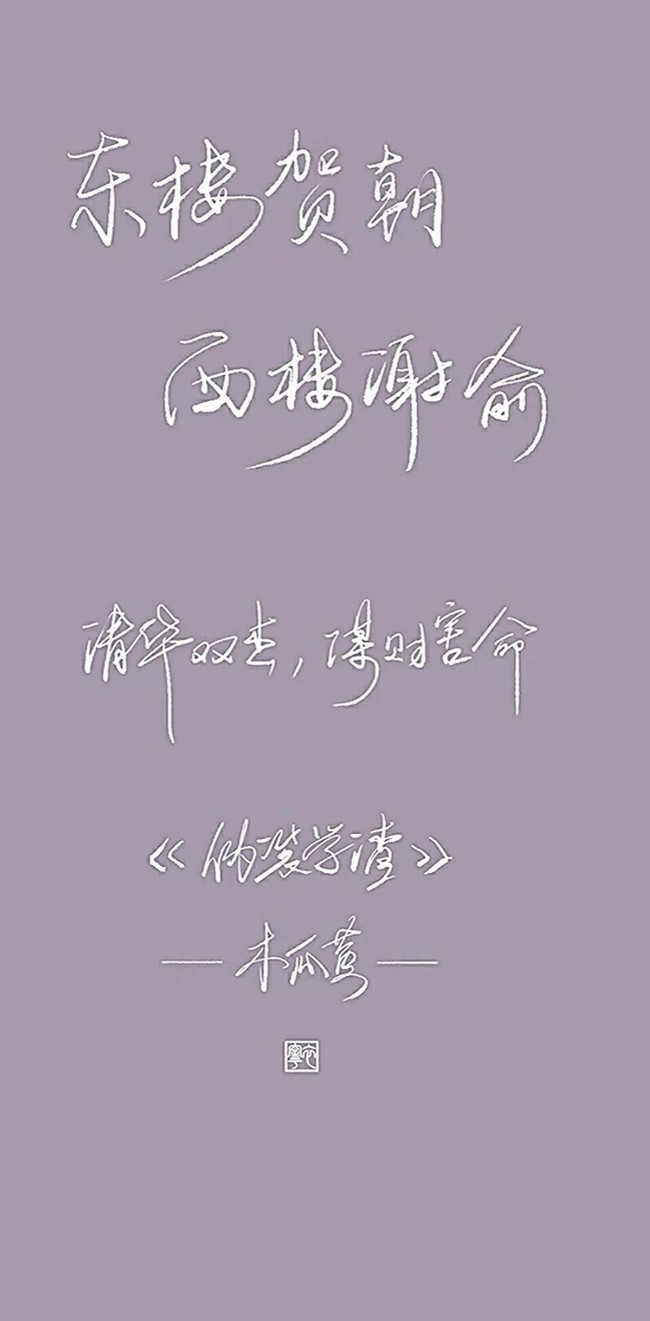 东楼贺朝
西楼谢俞
清华双杰，谋财害命
《伪装学渣》
—木瓜黄—